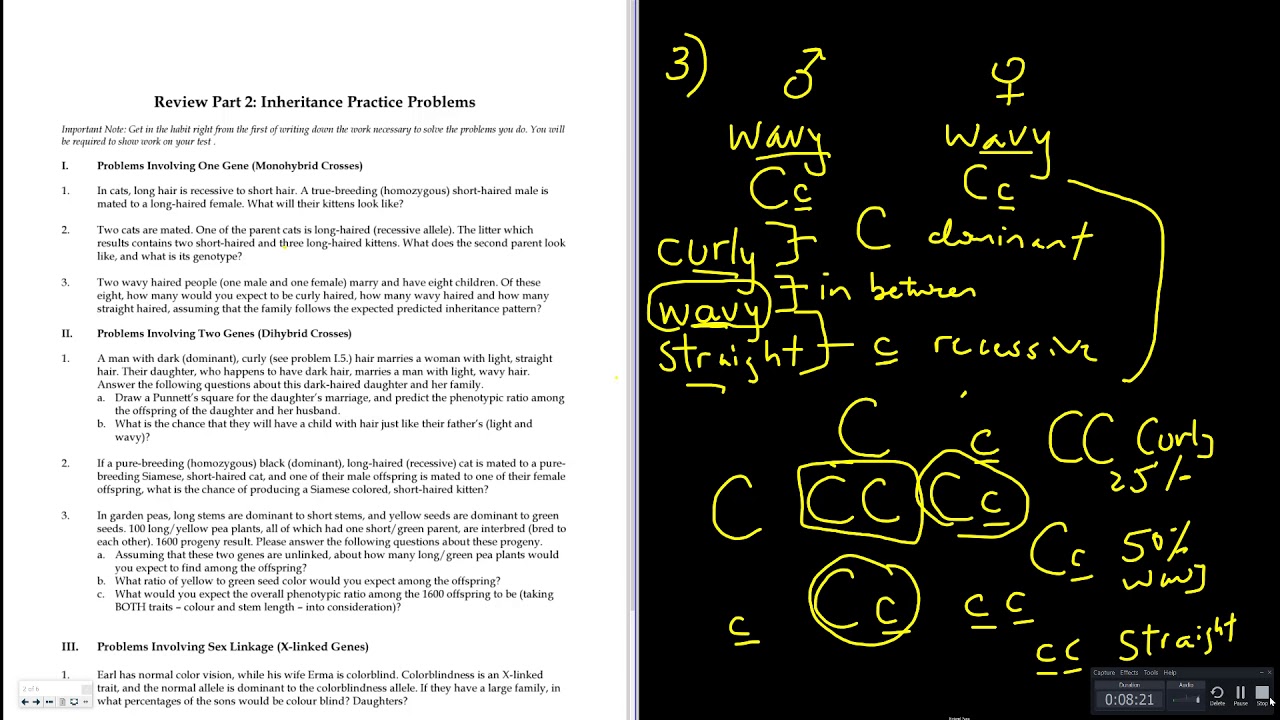 Review Part 2: Inheritance Practice Problems
Important Note: Get in the habit right from the first of writing down the work necessary to solve the problems you do. You will
be required to show work on your test .
I. Problems Involving One Gene (Monohybrid Crosses)
1. In cats, long hair is recessive to short hair. A true-breeding (homozygous) short-haired male is
mated to a long-haired female. What will their kittens look like?
2. Two cats are mated. One of the parent cats is long-haired (recessive allele). The litter which
results contains two short-haired and three long-haired kittens. What does the second parent look
like, and what is its genotype?
3. Two wavy haired people (one male and one female) marry and have eight children. Of these
eight, how many would you expect to be curly haired, how many wavy haired and how many
straight haired, assuming that the family follows the expected predicted inheritance pattern?
II. Problems Involving Two Genes (Dihybrid Crosses)
1. A man with dark (dominant), curly (see problem I.5.) hair marries a woman with light, straight
hair. Their daughter, who happens to have dark hair, marries a man with light, wavy hair.
Answer the following questions about this dark-haired daughter and her family.
a. Draw a Punnett's square for the daughter's marriage, and predict the phenotypic ratio among
the offspring of the daughter and her husband.
b. What is the chance that they will have a child with hair just like their father's (light and
wavy)?
2. If a pure-breeding (homozygous) black (dominant), long-haired (recessive) cat is mated to a pure-
breeding Siamese, short-haired cat, and one of their male offspring is mated to one of their female
offspring, what is the chance of producing a Siamese colored, short-haired kitten?
3. In garden peas, long stems are dominant to short stems, and yellow seeds are dominant to green
seeds. 100 long/yellow pea plants, all of which had one short/green parent, are interbred (bred to
each other). 1600 progeny result. Please answer the following questions about these progeny.
a. Assuming that these two genes are unlinked, about how many long/green pea plants would
you expect to find among the offspring?
b. What ratio of yellow to green seed color would you expect among the offspring?
c. What would you expect the overall phenotypic ratio among the 1600 offspring to be (taking
BOTH traits – colour and stem length – into consideration)?
III. Problems Involving Sex Linkage (X-linked Genes)
1. Earl has normal color vision, while his wife Erma is colorblind. Colorblindness is an X-linked
trait, and the normal allele is dominant to the colorblindness allele. If they have a large family, in
what percentages of the sons would be colour blind? Daughters?
2 of 6
3) ♂ ♀
wavy wavy
Cc Cc
curly C dominant
wavy in between
straight c recessive
C c CC Curly
25%
C CC Cc
Cc 50%
wavy
c Cc cc
cc Straight
Capture Effects Tools Help
Duration Audio
0:08:21 Delete Pause Stop